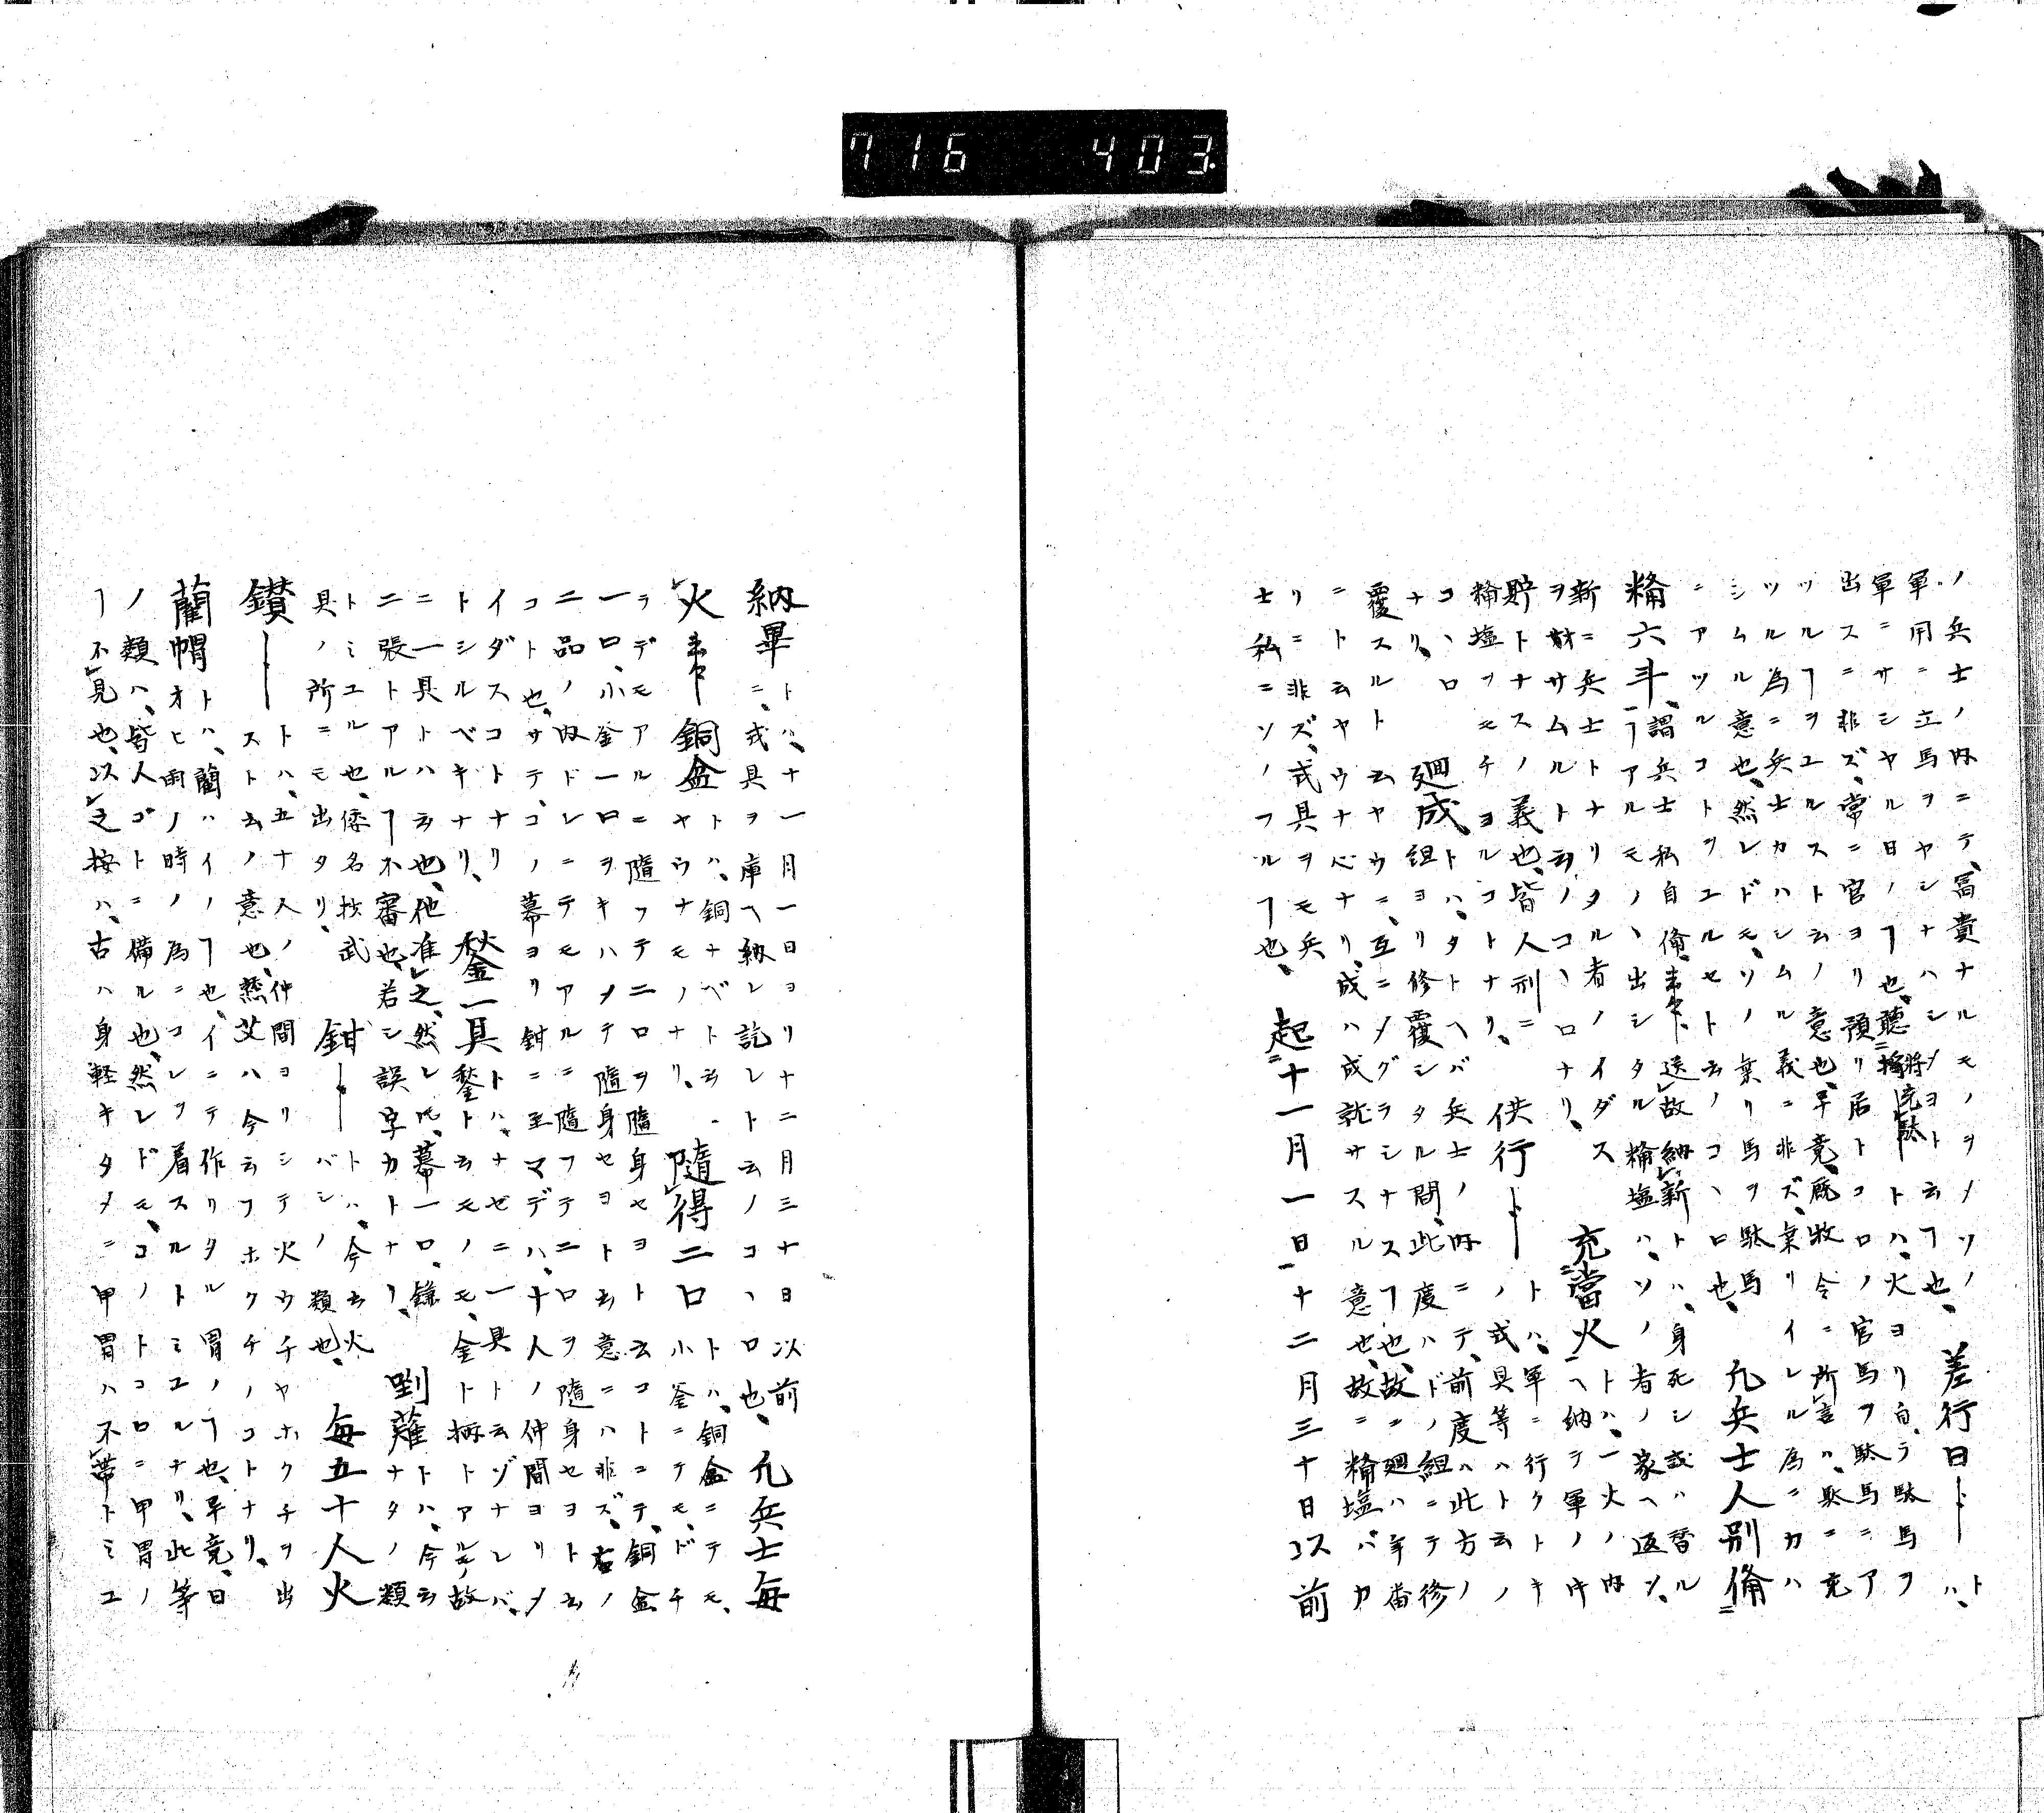 716 403
ノ兵士ノ内ニテ、冨貴ナルモノヲメソノ 差行日――トハ、
軍用ニ立馬ヲヤシナハシメヲト云フヿ也、
軍ニサシヤル日ノヿ也、聴将充駄――トハ、火ヨリ自ラ駄馬ヲ
出スニ非ズ、常ニ官ヨリ預リ居トコロノ官馬ヲ駄馬ニア
ツルヿヲユルスト云ノ意也、畢竟、厩牧令ニ所言ハ、駄ニ充
ツル為ニ兵士カハシムル義ニ非ズ、乗リイレル為ニカハ
シムル意也、然レドモ、ソノ乗リ馬ヲ駄馬
ニアツルコトヲユルセト云ノコヽロ也、 凢兵士人別備
糒六斗、謂兵士私自備、 送故納新トハ、身死シ或ハ替ル
ヿアルモノヽ出シタル糒塩ハ、ソノ者ノ家ヘ返シ、
新ニ兵士トナリタル者ノイダス 充當火トハ、一火ノ内
ヲ財サムルト云ノコヽロナリ、 ヘ納テ軍ノトキ
貯トナスノ義也、皆人別ニ 供行――トハ、軍ニ行クトキ
糒塩ヲモチヨルコトナリ、 ノ戎具等ハト云ノ
コヽロ 廻成トハ、タトヘバ兵士ノ内ニテ、前度ハ此方ノ
ナリ、 組ヨリ修覆シタル間、此度ハドノ組ニテ修
覆スルト云ヤウニ、互ニメグラシナスヿ也、故ニ廻ハ年番
ニト云ヤウナ心ナリ、成ハ成就サスル意也、故ニ糒塩バカ
リニ非ズ、戎具ヲモ兵 起十一月一日十二月三十日以前
士私ニソノフルヿ也、
納畢トハ、十一月一日ヨリ十二月三十日以前 凢兵士毎
ニ、戎具ヲ庫ヘ納レ訖レト云ノコヽロ也、
火 銅盆トハ、銅ナベト云 隨得二口トハ、銅盆ニテモ、
ヤウナモノナリ、 小釜ニテモ、ドチ
ラデモアルニ隨フテ二口ヲ隨身セヨト云コトニテ、銅盆
一口、小釜一口ヲキハメテ隨身セヨト云意ニハ非ズ、右ノ
二品ノ内ドレニテモアルニ隨フテ二口ヲ隨身セヲト云
コト也、サテ、コノ幕ヨリ鉗ニ至マデハ、十人ノ仲間ヨリメ
イダスコトナリ 釜一具トハ、ナゼニ一具ト云ゾナレバ、
トシルベキナリ、 鍫ト云モノモ、金ト柄トアルモノ故
ニ一具トハ云也、他准之、然レ𪜈、幕一口、鎌 剉薙トハ、今云
二張トアルヿ不審也、若シ誤字カトナリ、 ナタノ類
トミエル也、倭名抄武 鉗――トハ、今云火 毎五十人火
具ノ所ニモ出タリ、 バシノ類也、
鑚――トハ、五十人ノ仲間ヨリシテ火ウチヤホクチヲ出
ストム云ノ意也、熟艾ハ今云フホクチノコトナリ、
藺帽トハ、藺ハイノヿ也、イニテ作リタル冑ノヿ也、畢竟、日
オヒ雨ノ時ノ為ニコレヲ着スルトミユルナリ、此等
ノ類ハ、皆人ゴトニ備ル也、然レドモ、コノトコロニ甲冑ノ
ヿ不見也、以之按ハ、古ハ身軽キタメニ甲冑ハ不帯トミユ